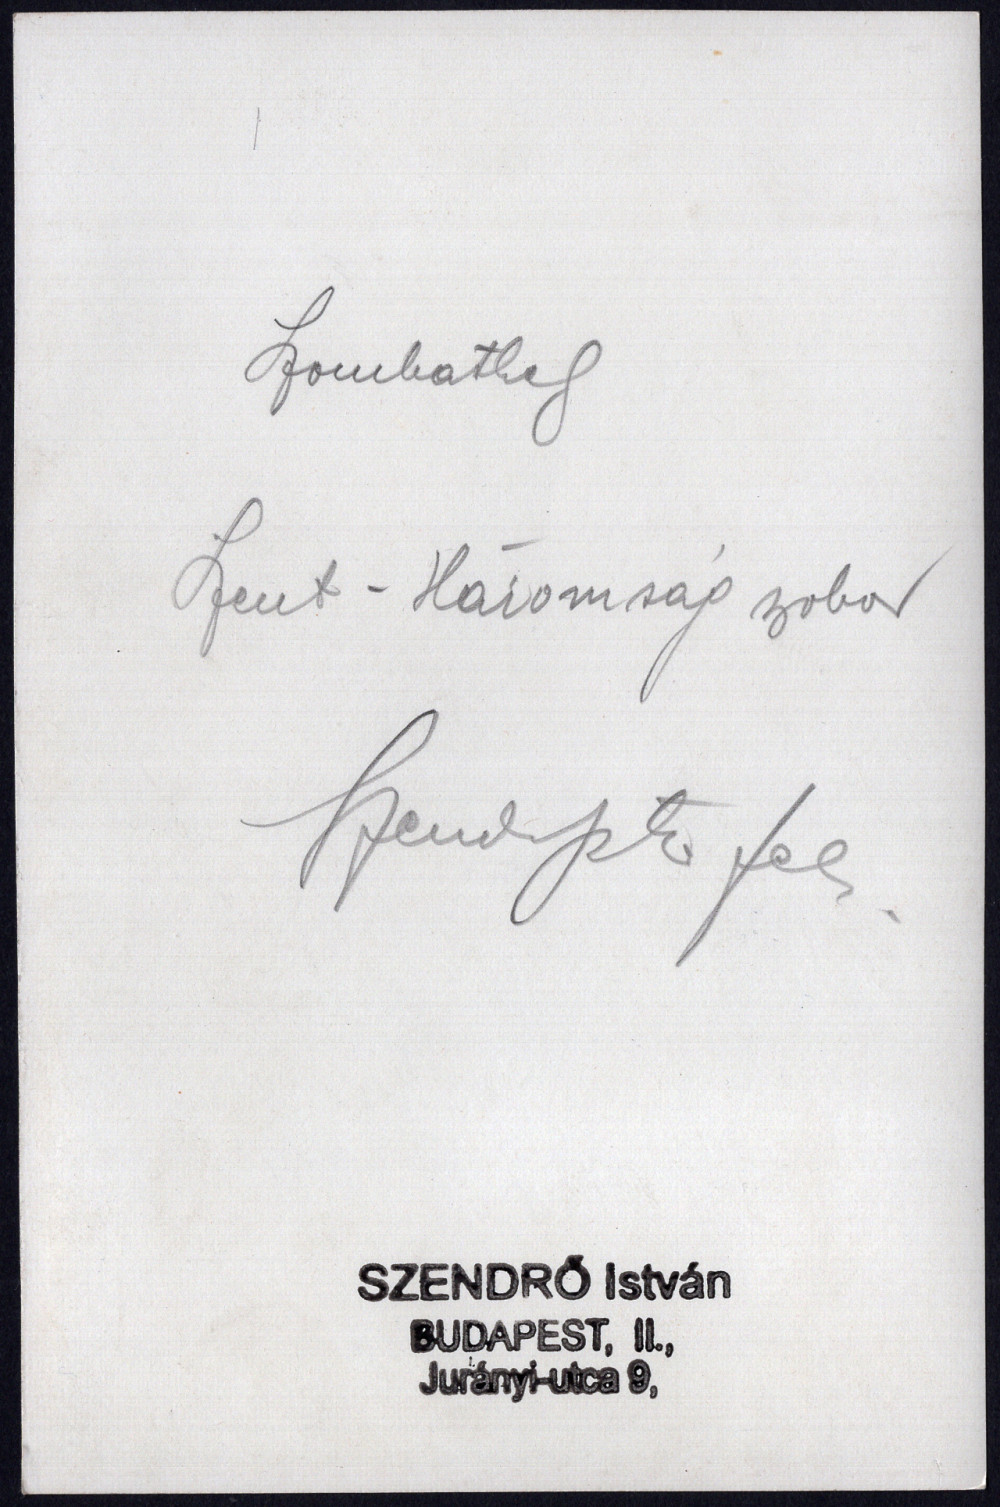 Szombathely
Szent - Háromság szobor
Szendrő István fel.
SZENDRŐ István
BUDAPEST, II.,
Jurányi-utca 9,